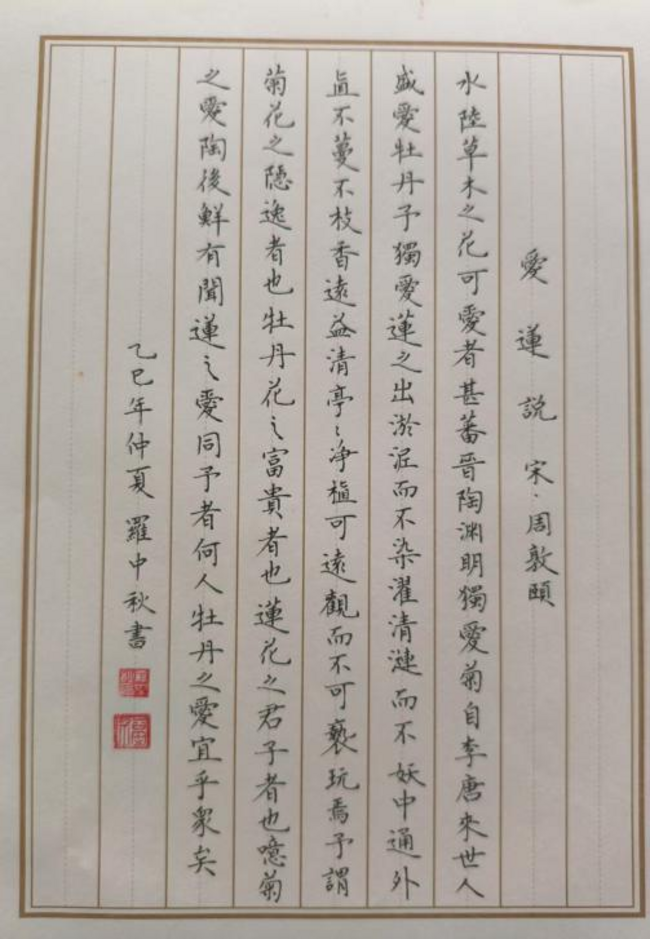 愛蓮說 宋·周敦頤
水陸草木之花可愛者甚蕃晉陶渊明獨愛菊自李唐來世人
盛愛牡丹予獨愛蓮之出淤泥而不染濯清漣而不妖中通外
直不蔓不枝香遠益清亭〻净植可遠觀而不可褻玩焉予謂
菊花之隱逸者也牡丹花之富貴者也蓮花之君子者也噫菊
之愛陶後鮮有聞蓮之愛同予者何人牡丹之愛宜乎衆矣
乙巳年仲夏 羅中秋書